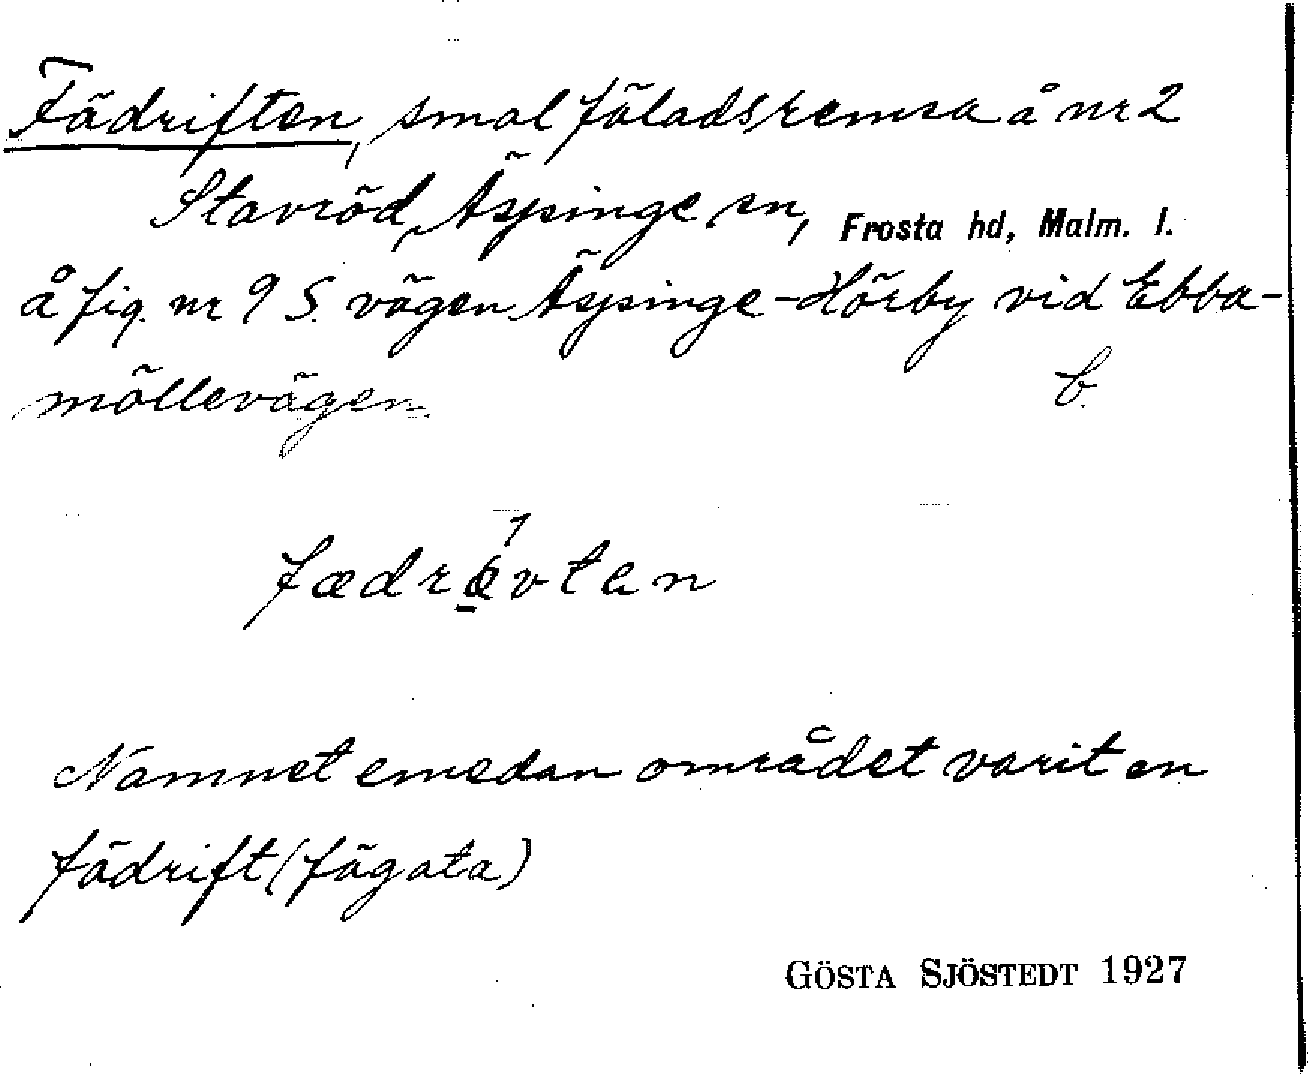 Fädriften, smal fäladsremsa å nr 2
Stavröd, Äspinge sn, Frosta hd, Malm. l.
å fig. nr 9 S. vägen Äspinge-Hörby vid Ebba-
möllevägen. b.
Namnet emedan området varit en
fädrift (fägata)
GÖSTA SJÖSTEDT 1927